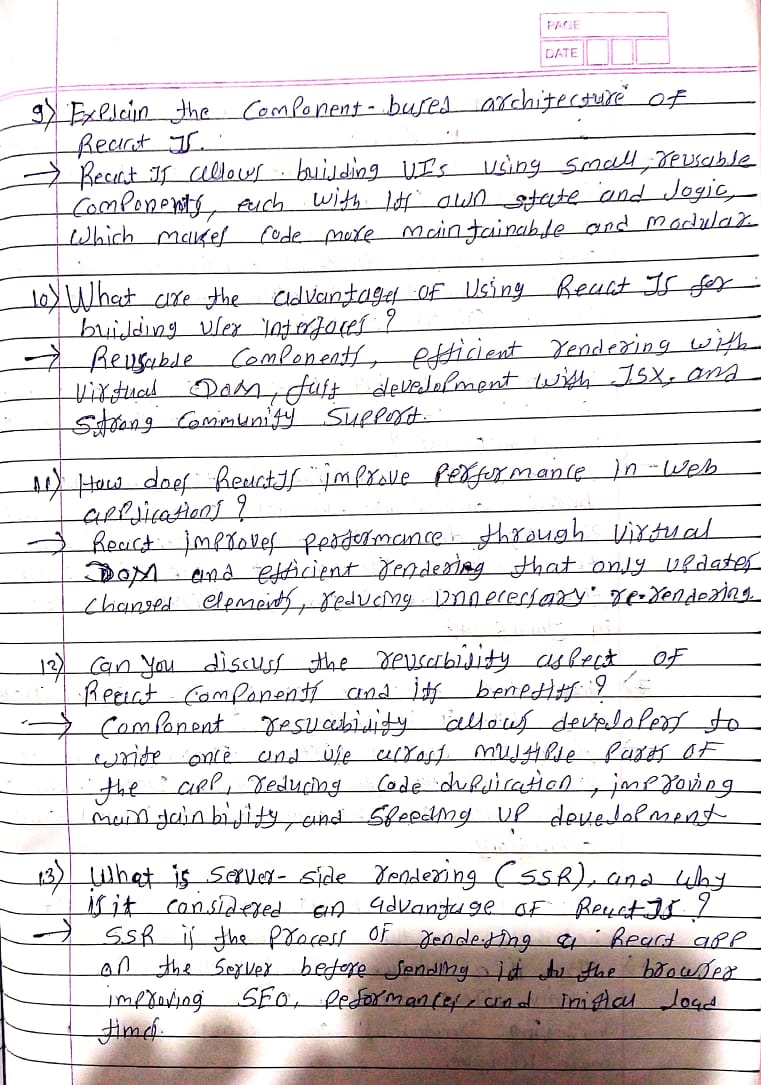 PAGE
DATE
9) Explain the Component-based architecture of
React JS.
→ React JS allows building UIs using small, reusable
Components, each with its own state and logic,
Which makes code more maintainable and modular
10) What are the advantages of Using React JS for
building user interfaces?
→ Reusable Components, efficient rendering with
Virtual DOM, fast development with JSX, and
Strong Community Support.
11) How does React JS improve Performance in-web
applications?
→ React improves performance through Virtual
DOM and efficient rendering that only updates
changed elements, reducing unnecessary re-rendering.
12) Can you discuss the reusability aspect of
React Components and its benefits?
→ Component resuability allows developers to
write once and use across multiple parts of
the app, reducing Code duplication, improving
maintainbility, and speeding up development
13) What is Server-side rendering (SSR), and Why
is it considered an advantage of React JS?
→ SSR is the process of rendering a React app
on the server before sending it to the browser
improving SEO, Peformances, and initial load
times.